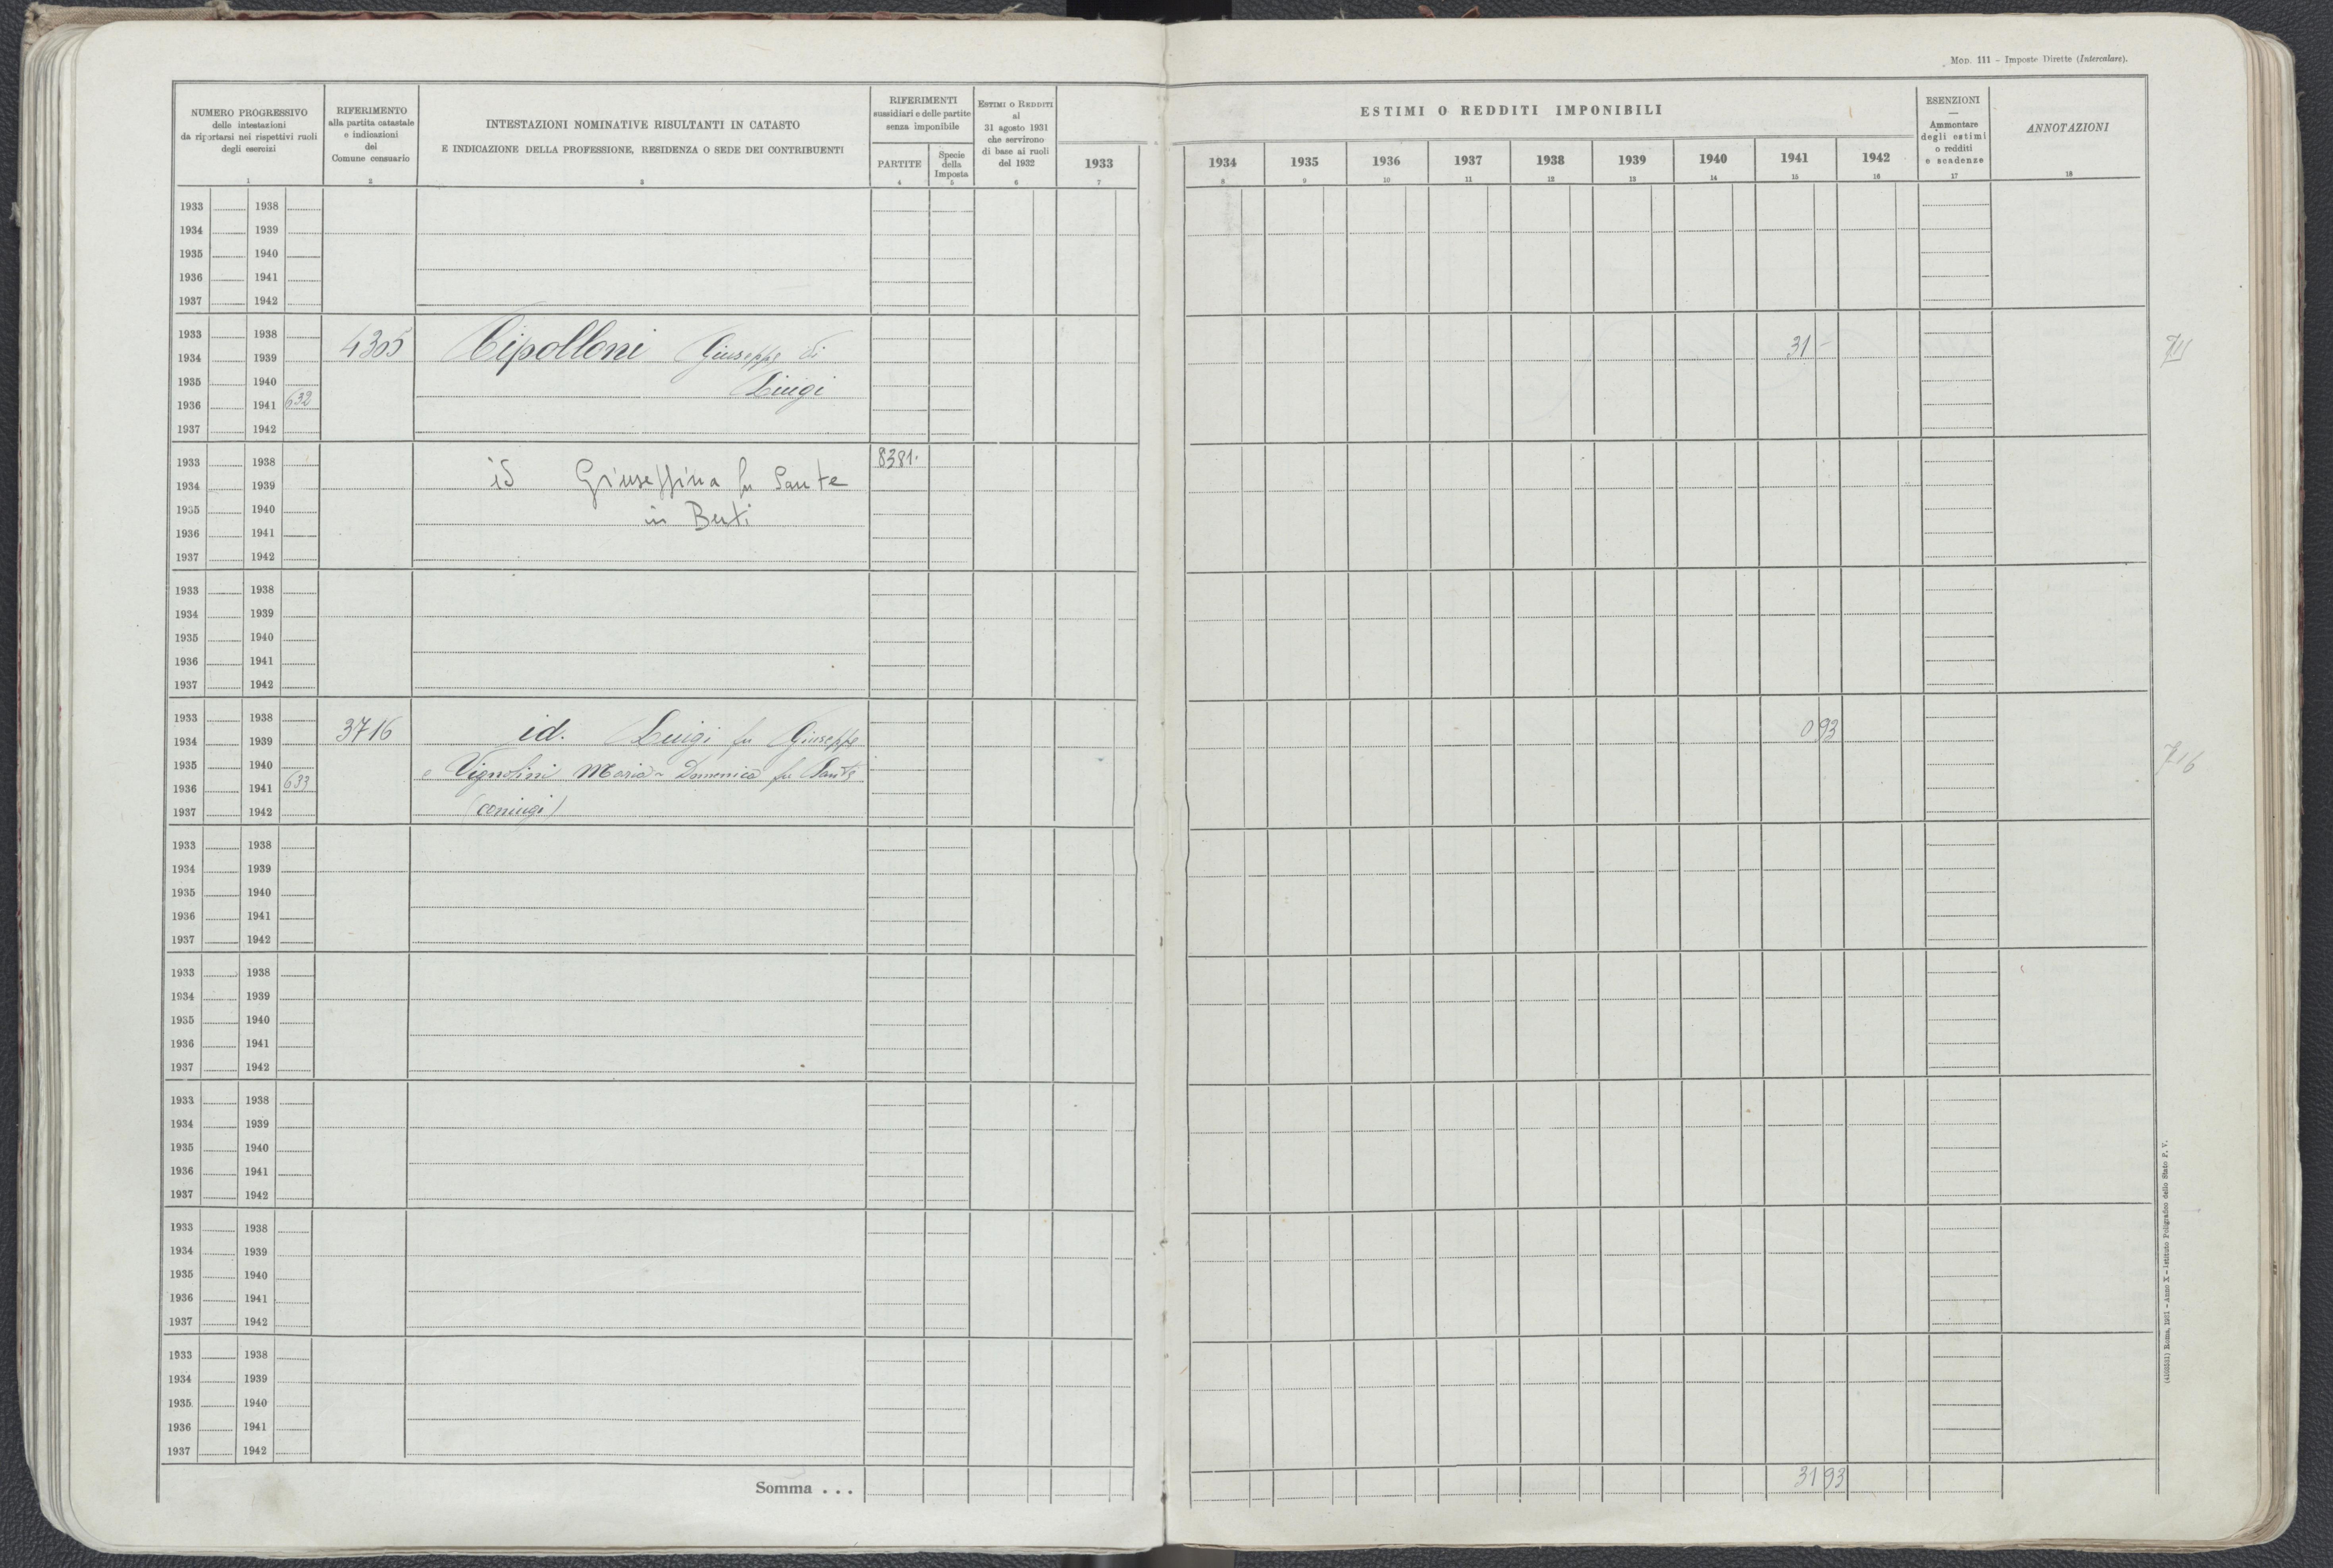 Mod. 111 - Imposte Dirette (Intercalare).
NUMERO PROGRESSIVO
delle intestazioni
da riportarsi nei rispettivi ruoli
degli esercizi
1
RIFERIMENTO
alla partita catastale
e indicazioni
del
Comune censuario
2
INTESTAZIONI NOMINATIVE RISULTANTI IN CATASTO
E INDICAZIONE DELLA PROFESSIONE, RESIDENZA O SEDE DEI CONTRIBUENTI
3
RIFERIMENTI
sussidiari e delle partite
senza imponibile
PARTITE
4
Specie
della
Imposta
5
Estimi o Redditi
al
31 agosto 1931
che servirono
di base ai ruoli
del 1932
6
1933
7
ESTIMI O REDDITI IMPONIBILI
1934 1935 1936 1937 1938 1939 1940 1941 1942
8 9 10 11 12 13 14 15 16
ESENZIONI
—
Ammontare
degli estimi
o redditi
e scadenze
17
ANNOTAZIONI
18
1933 1938
1934 1939
1935 1940
1936 1941
1937 1942
1933 1938
1934 1939 4305 Cipolloni Giuseppe di 31 -
1935 1940 Luigi
1936 1941 632
1937 1942
1933 1938 8381.
1934 1939 id Giuseppina fu Sante
1935 1940 in Berti
1936 1941
1937 1942
1933 1938
1934 1939
1935 1940
1936 1941
1937 1942
1933 1938
1934 1939 3716 id. Luigi fu Giuseppe 0 93
1935 1940 e Vignolini Maria Domenica fu Sante
1936 1941 633
1937 1942 (coniugi)
1933 1938
1934 1939
1935 1940
1936 1941
1937 1942
1933 1938
1934 1939
1935 1940
1936 1941
1937 1942
1933 1938
1934 1939
1935 1940
1936 1941
1937 1942
1933 1938
1934 1939
1935 1940
1936 1941
1937 1942
1933 1938
1934 1939
1935 1940
1936 1941
1937 1942
Somma . . . 31 93
Roma, 1931 - Anno X - Istituto Poligrafico dello Stato P. V.